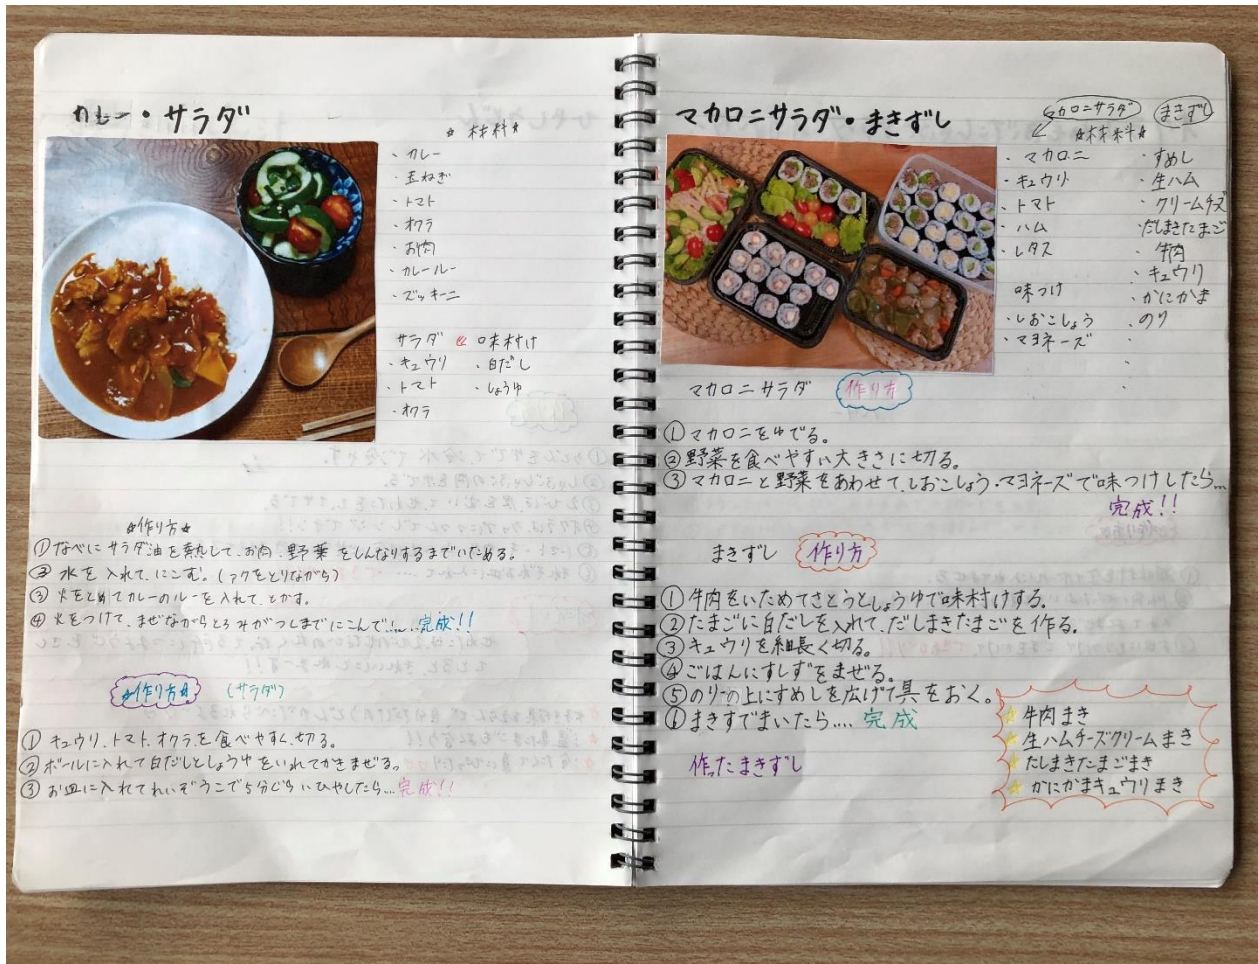 カレー・サラダ
☆材料☆
・カレー
・玉ねぎ
・トマト
・オクラ
・お肉
・カレールー
・ズッキーニ
サラダ 味村け
・キュウリ ・白だし
・トマト ・しょうゆ
・オクラ
☆作り方☆
①なべにサラダ油を熱して、お肉、野菜をしんなりするまでいためる。
②水を入れて、にこむ。(アクをとりながら)
③火をとめてカレーのルーを入れて、とかす。
④火をつけて、まぜながらとろみがつくまでにこんで!...完成!!
☆作り方☆ (サラダ)
①キュウリ、トマト、オクラ、を食べやすく、切る。
②ボールに入れて白だしとしょうゆをいれてかきまぜる。
③お皿に入れてれいぞうこで5分ぐらいひやしたら...完成!!
マカロニサラダ・まきずし
マカロニサラダ まきずし
☆材料☆
・マカロニ ・すめし
・キュウリ ・生ハム
・トマト ・クリームチーズ
・ハム ・だしまきたまご
・レタス ・牛肉
・キュウリ
味つけ ・かにかま
・しおこしょう ・のり
・マヨネーズ
マカロニサラダ 作り方
①マカロニをゆでる。
②野菜を食べやすい大きさに切る。
③マカロニと野菜をあわせて、しおこしょう・マヨネーズで味つけしたら...
完成!!
まきずし 作り方
①牛肉をいためてさとうとしょうゆで味村けする。
②たまごに白だしを入れて、だしまきたまごを作る。
③キュウリを細長く切る。
④ごはんにすしずをまぜる。
⑤のりの上にすめしを広げて具をおく。
⑥まきすでまいたら....完成
作ったまきずし
☆牛肉まき
☆生ハムチーズクリームまき
☆だしまきたまごまき
☆かにかまキュウリまき